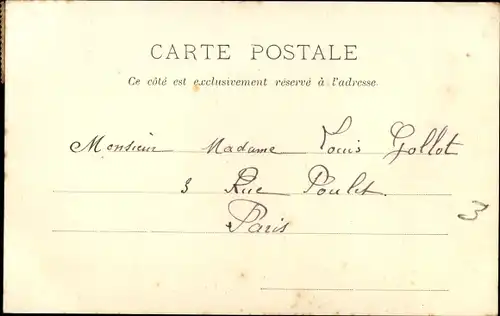 CARTE POSTALE
Ce côté est exclusivement réservé à l'adresse.
Monsieur Madame Louis Gollot
3 Rue Poulet
Paris
3